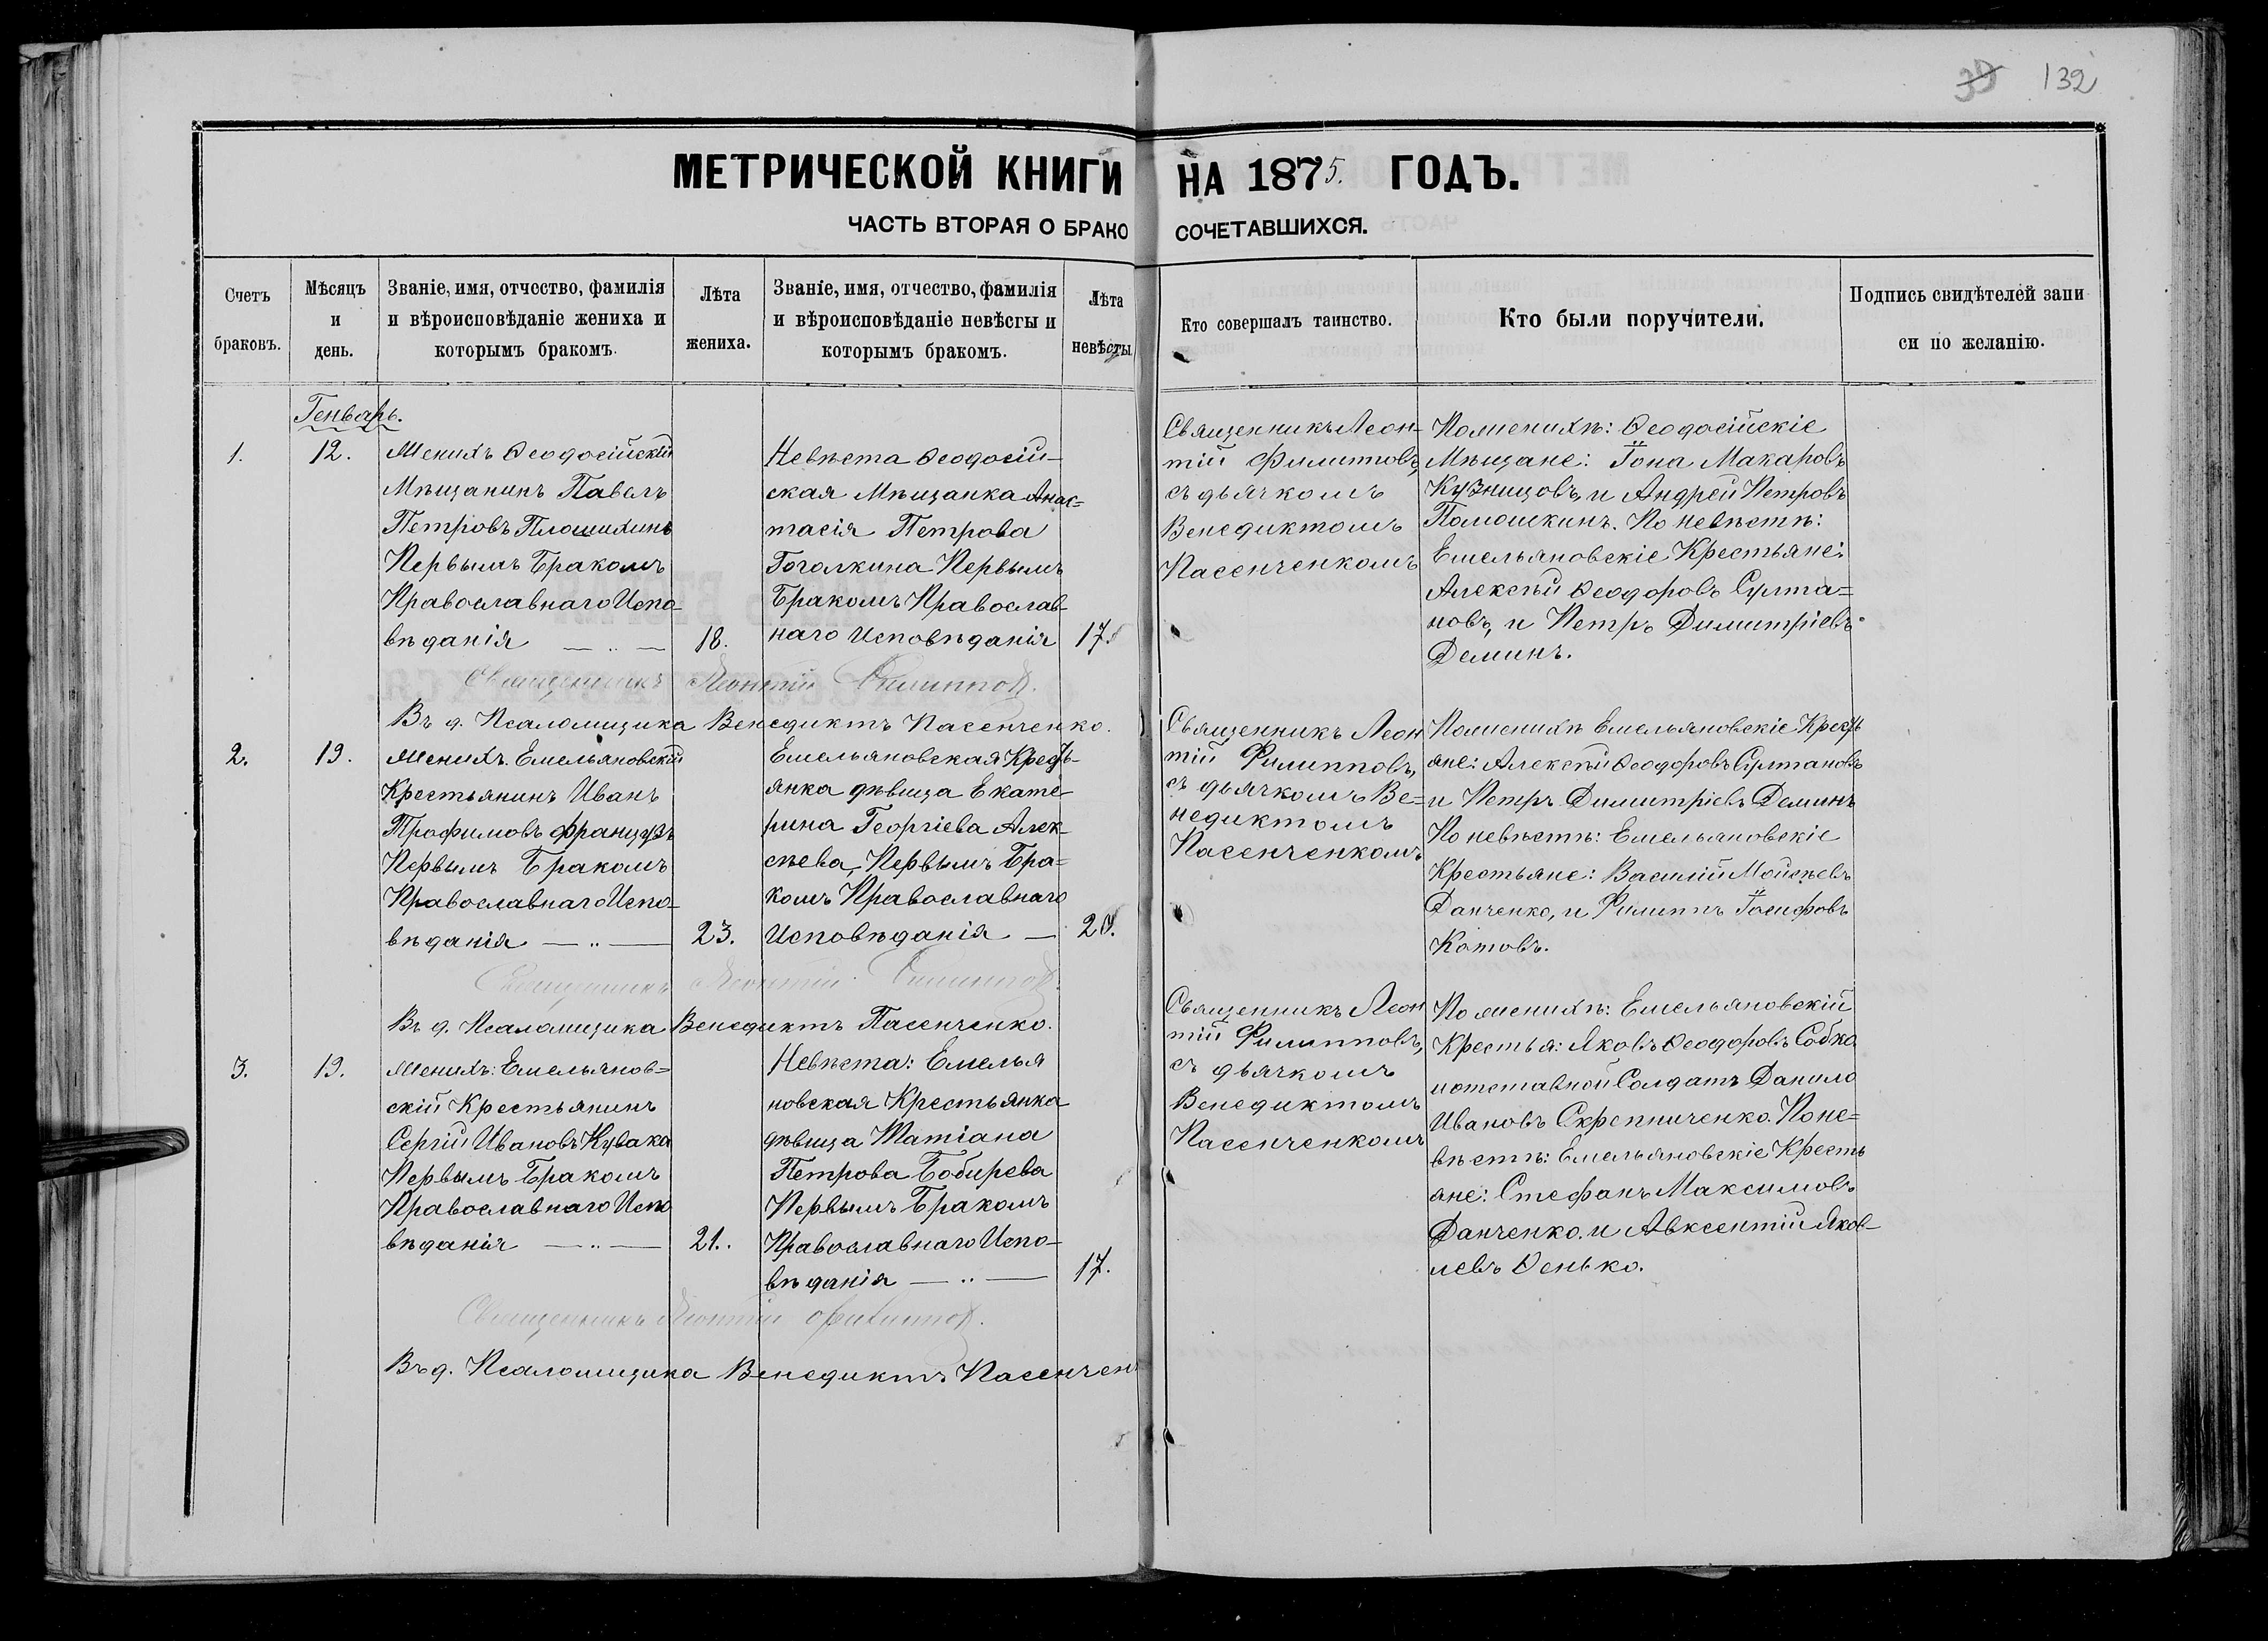 39 132
МЕТРИЧЕСКОЙ КНИГИ НА 1875. ГОДЪ.
ЧАСТЬ ВТОРАЯ О БРАКОСОЧЕТАВШИХСЯ.
Счетъ
браковъ.
Мѣсяцъ
и
день.
Званіе, имя, отчество, фамилія
и вѣроисповѣданіе жениха и
которымъ бракомъ.
Лѣта
жениха.
Званіе, имя, отчество, фамилія
и вѣроисповѣданіе невѣсты и
которымъ бракомъ.
Лѣта
невѣсты.
Кто совершалъ таинство.
Кто были поручители.
Подпись свидѣтелей запи
си по желанію.
Генварь.
1.
12.
Женихъ Ѳеодосійскій
Мѣщанинъ Павелъ
Петровъ Плошихинъ
Первымъ Бракомъ
Православнаго Испо-
вѣданія
18.
Невѣста Ѳеодосій-
ская Мѣщанка Анас=
тасія Петрова
Гоголкина Первымъ
Бракомъ Православ-
наго Исповѣданія
17.
Священникъ Леон-
тій Филипповъ,
съ дьячкомъ
Венедиктомъ
Пасенченкомъ
По женихѣ: Ѳеодосійскіе
Мѣщане: Іона Макаровъ
Кузницовъ, и Андрей Петровъ
Помошкинъ. По невѣстѣ:
Емельяновскіе Крестьяне:
Алексѣй Ѳеодоровъ Султа=
новъ, и Петръ Димитріевъ
Деминъ.
Священникъ Леонтій Филиппов.
Въ д. Псаломщика Венедиктъ Пасенченко.
2.
19.
Женихъ. Емельяновскій
Крестьянинъ Иванъ
Трофимовъ Французъ
Первымъ Бракомъ
Православнаго Испо-
вѣданія
23.
Емельяновская Кресть-
янка дѣвица Екате-
рина Георгіева Алек-
сѣева, Первымъ Бра=
комъ Православнаго
Исповѣданія
20.
Священникъ Леон
тій Филипповъ,
съ дьячкомъ Ве=
недиктомъ
Пасенченкомъ
По женихѣ Емельяновскіе Кресть
яне: Алексѣй Ѳеодоровъ Султановъ
и Петръ Димитріевъ Деминъ
По невѣстѣ: Емельяновскіе
Крестьяне: Василій Мойсѣевъ
Данченко, и Филиппъ Іосифовъ
Котовъ.
Священникъ Леонтій Филиппов.
Въ д. Псаломщика Венедиктъ Пасенченко.
3.
19.
Женихъ: Емельянов=
скій Крестьянинъ
Сергій Ивановъ Кувака
Первымъ Бракомъ
Православнаго Испо
вѣданія
21.
Невѣста: Емелья
новская Крестьянка
дѣвица Татіана
Петрова Бобирева
Первымъ Бракомъ
Православнаго Испо-
вѣданія
17.
Священникъ Леон
тій Филипповъ,
съ дьячкомъ
Венедиктомъ
Пасенченкомъ
По женихѣ: Емельяновскій
Крестья: Яковъ Ѳеодоровъ Собко
и отставной Солдатъ Данило
Ивановъ Скрепниченко. По не=
вѣстѣ: Емельяновскіе Кресть
яне: Стефанъ Максимовъ
Данченко. и Авксентій Яков-
левъ Ѳенько.
Священникъ Леонтій Филиппов.
Въ д. Псаломщика Венедиктъ Пасенчен